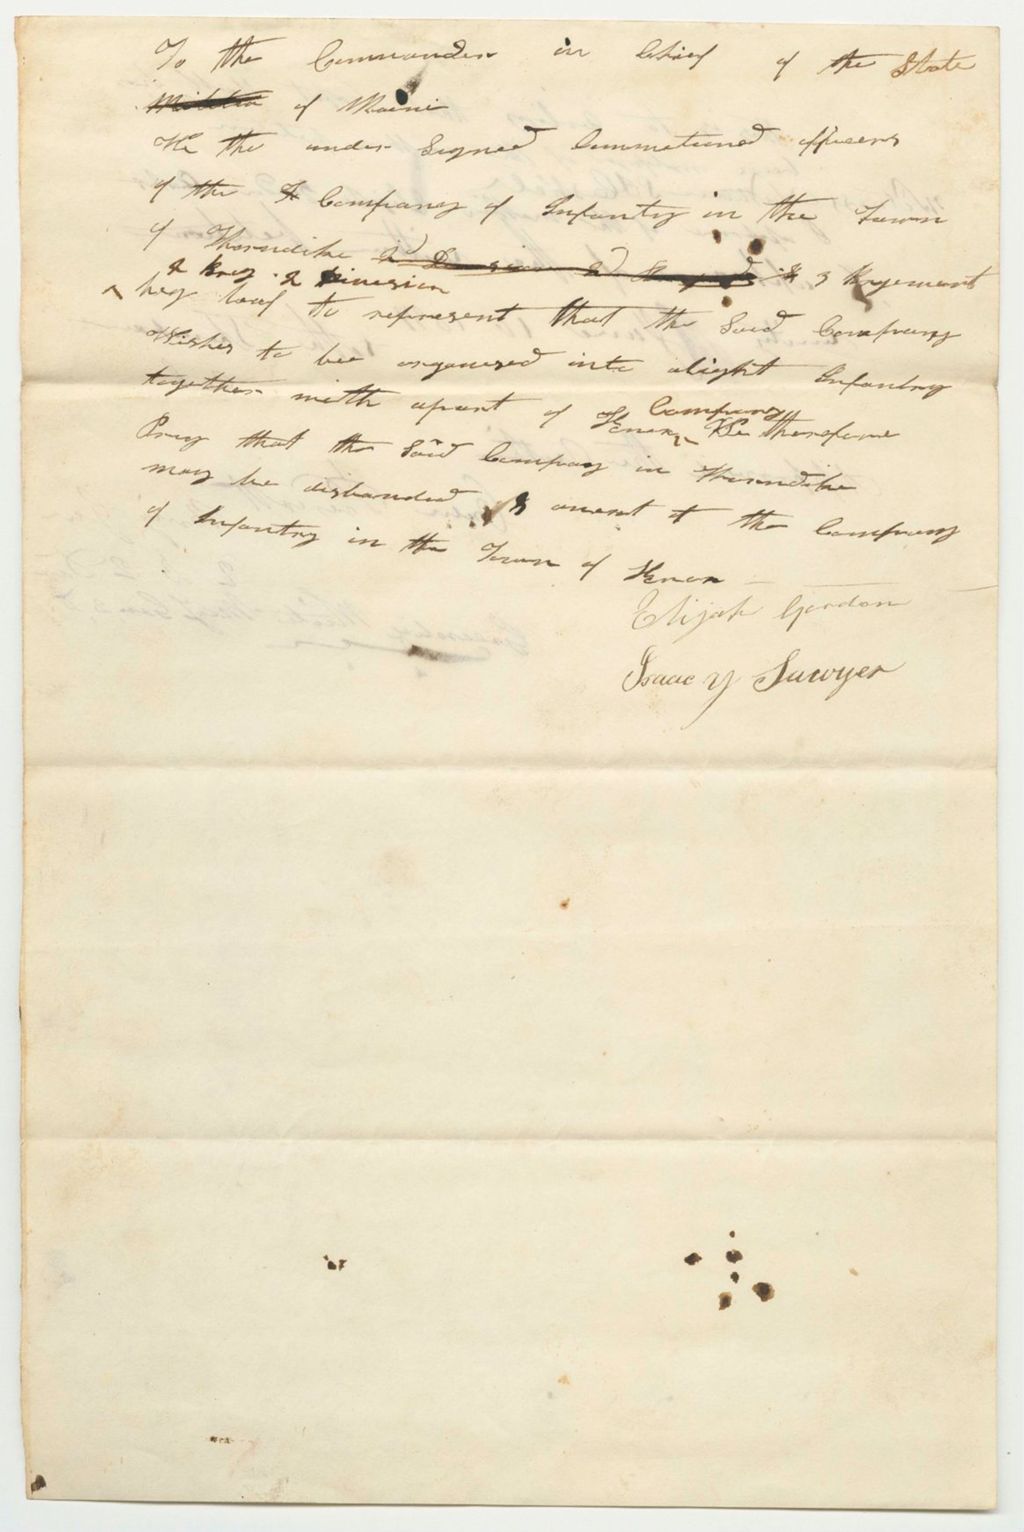 To the Commander in Chief of the State
Militia of Maine
We the under Signed Commitioned officers
of the Company of Infantry in the Town
of Thorndike 3 Regement
2 Breg. 2 Division
beg leaf to represent that the Said Company
Wishes to bee organised into alight Infantry
Company
together with apart of Knox We therefore
Pray that the Said Company in Thorndike
may be disbanded & anext to the Company
of Infantry in the Town of Knox
Elijah Gordon
Isaac Y Sawyer